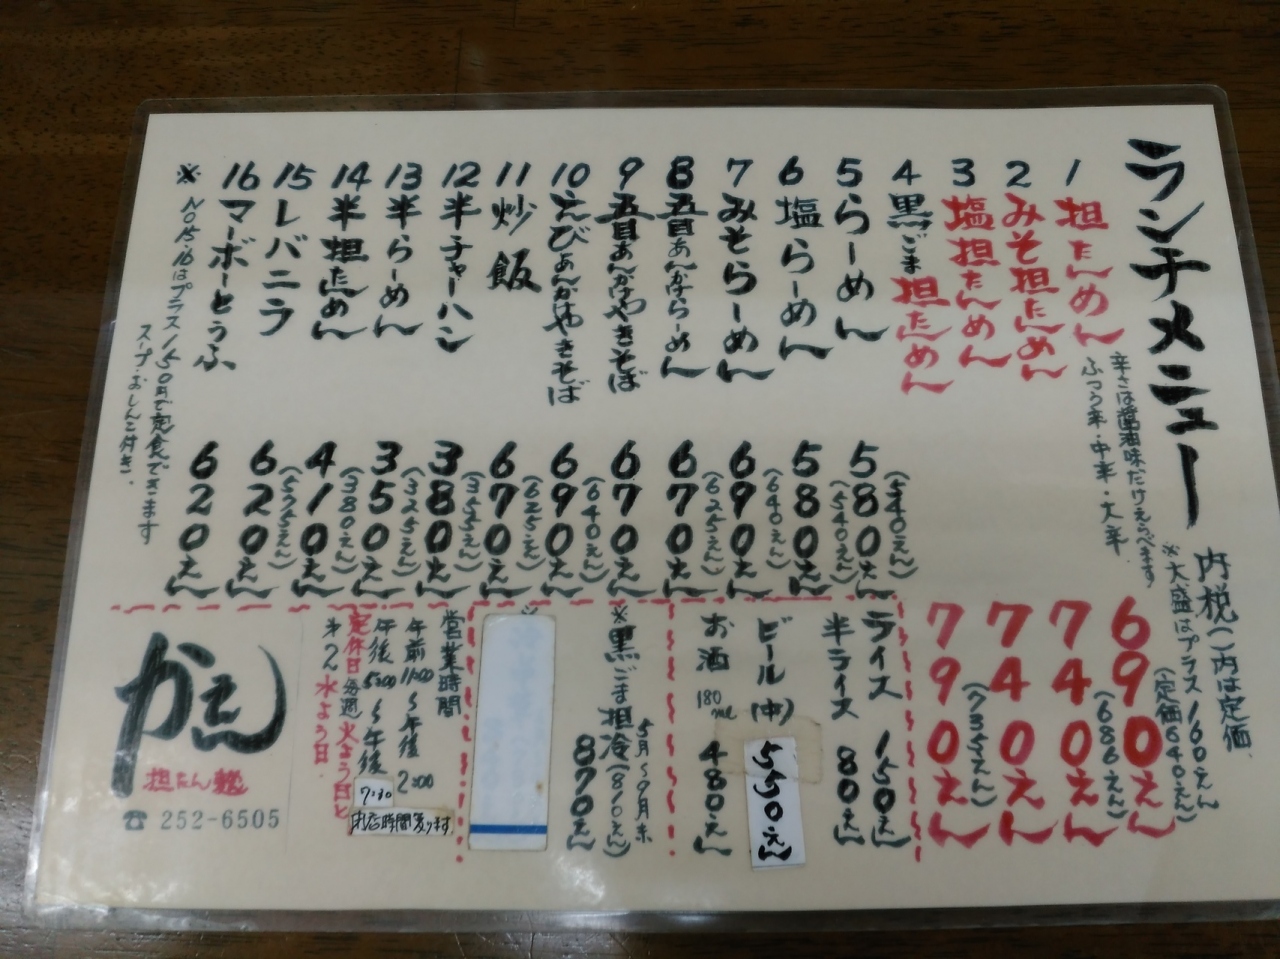 ランチメニュー
内税()内は定価
※大盛はプラス160えん
1 担たんめん 690えん
(定価640えん)
辛さは醤油味だけえらべます
ふつう辛・中辛・大辛
2 みそ担たんめん 740えん
(686えん)
3 塩担たんめん 740えん
4 黒ごま担たんめん 790えん
(735えん)
5 らーめん 580えん
(540えん)
6 塩らーめん 580えん
(540えん)
7 みそらーめん 690えん
(640えん)
8 五目あんかけらーめん 670えん
(625えん)
9 五目あんかけやきそば 670えん
10 えびあんかけやきそば 690えん
(640えん)
11 炒飯 670えん
(625えん)
12 半チャーハン 380えん
(355えん)
13 半らーめん 350えん
(325えん)
14 半担たんめん 410えん
(380えん)
15 レバニラ 620えん
(575えん)
16 マーボーとうふ 620えん
※No15.16はプラス150円で定食できます
スープ・おしんこ付き.
ライス 150えん
半ライス 80えん
ビール(中) 550えん
お酒 180ml 480えん
5月〜9月末
※黒ごま担冷(810えん)
870えん
営業時間
午前11:00〜午後2:00
午後5:00〜午後7:30
閉店時間変ります
定休日毎週火よう日と
第2水よう日.
かえん
担たん麺
☎ 252-6505